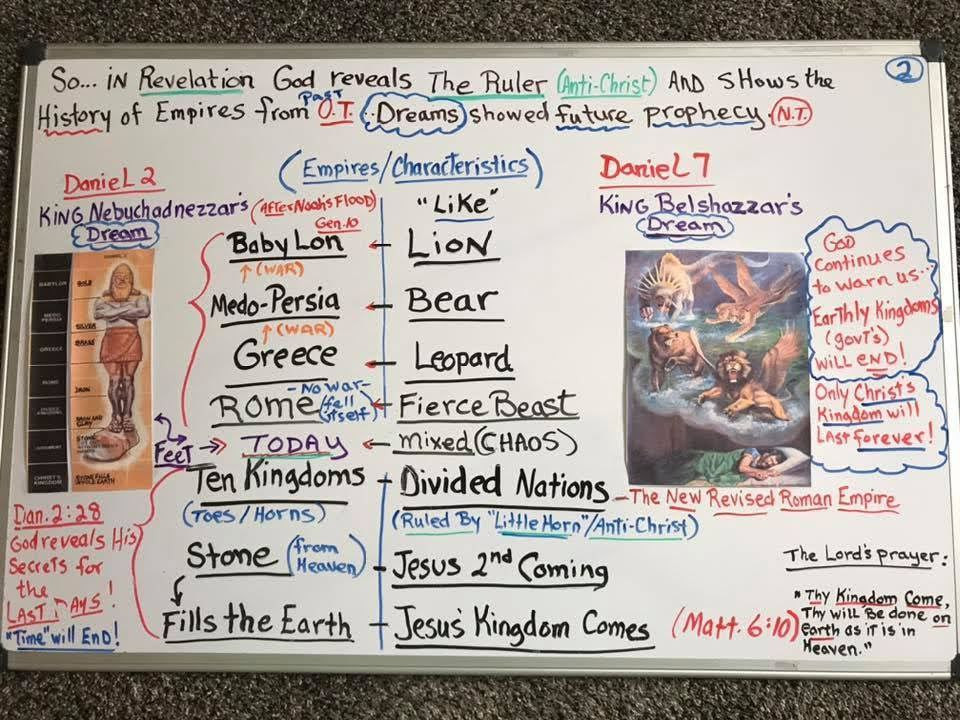 So... in Revelation God reveals The Ruler (Anti-Christ) And Shows the
2
History of Empires from Past O.T. Dreams showed future prophecy. (N.T.)
(Empires/Characteristics)
Daniel 2
King Nebuchadnezzar's
Dream
Daniel 7
King Belshazzar's
Dream
(After Noah's Flood)
Gen. 10
"Like"
Babylon ← Lion
↑ (War)
Medo-Persia ← Bear
↑ (War)
Greece ← Leopard
- No war -
Rome (fell itself) ← Fierce Beast
Feet → Today ← Mixed (Chaos)
Ten Kingdoms - Divided Nations - The New Revised Roman Empire
(Toes/Horns)
(Ruled By "Little Horn"/Anti-Christ)
Stone (from Heaven) - Jesus 2nd Coming
Fills the Earth - Jesus's Kingdom Comes (Matt. 6:10)
BABYLON GOLD
MEDO PERSIA SILVER
GREECE BRASS
ROME IRON
IRON AND CLAY
JUDGMENT STONE
CHRIST'S KINGDOM STONE FILLS WHOLE EARTH
Dan. 2:28
God reveals His
Secrets for
the
Last Days!
"Time" will End!
God
continues
to warn us...
Earthly Kingdoms
(govt's)
will end!
Only Christ's
Kingdom will
Last forever!
The Lord's prayer:
"Thy Kingdom Come,
Thy will Be done on
Earth as it is in
Heaven."